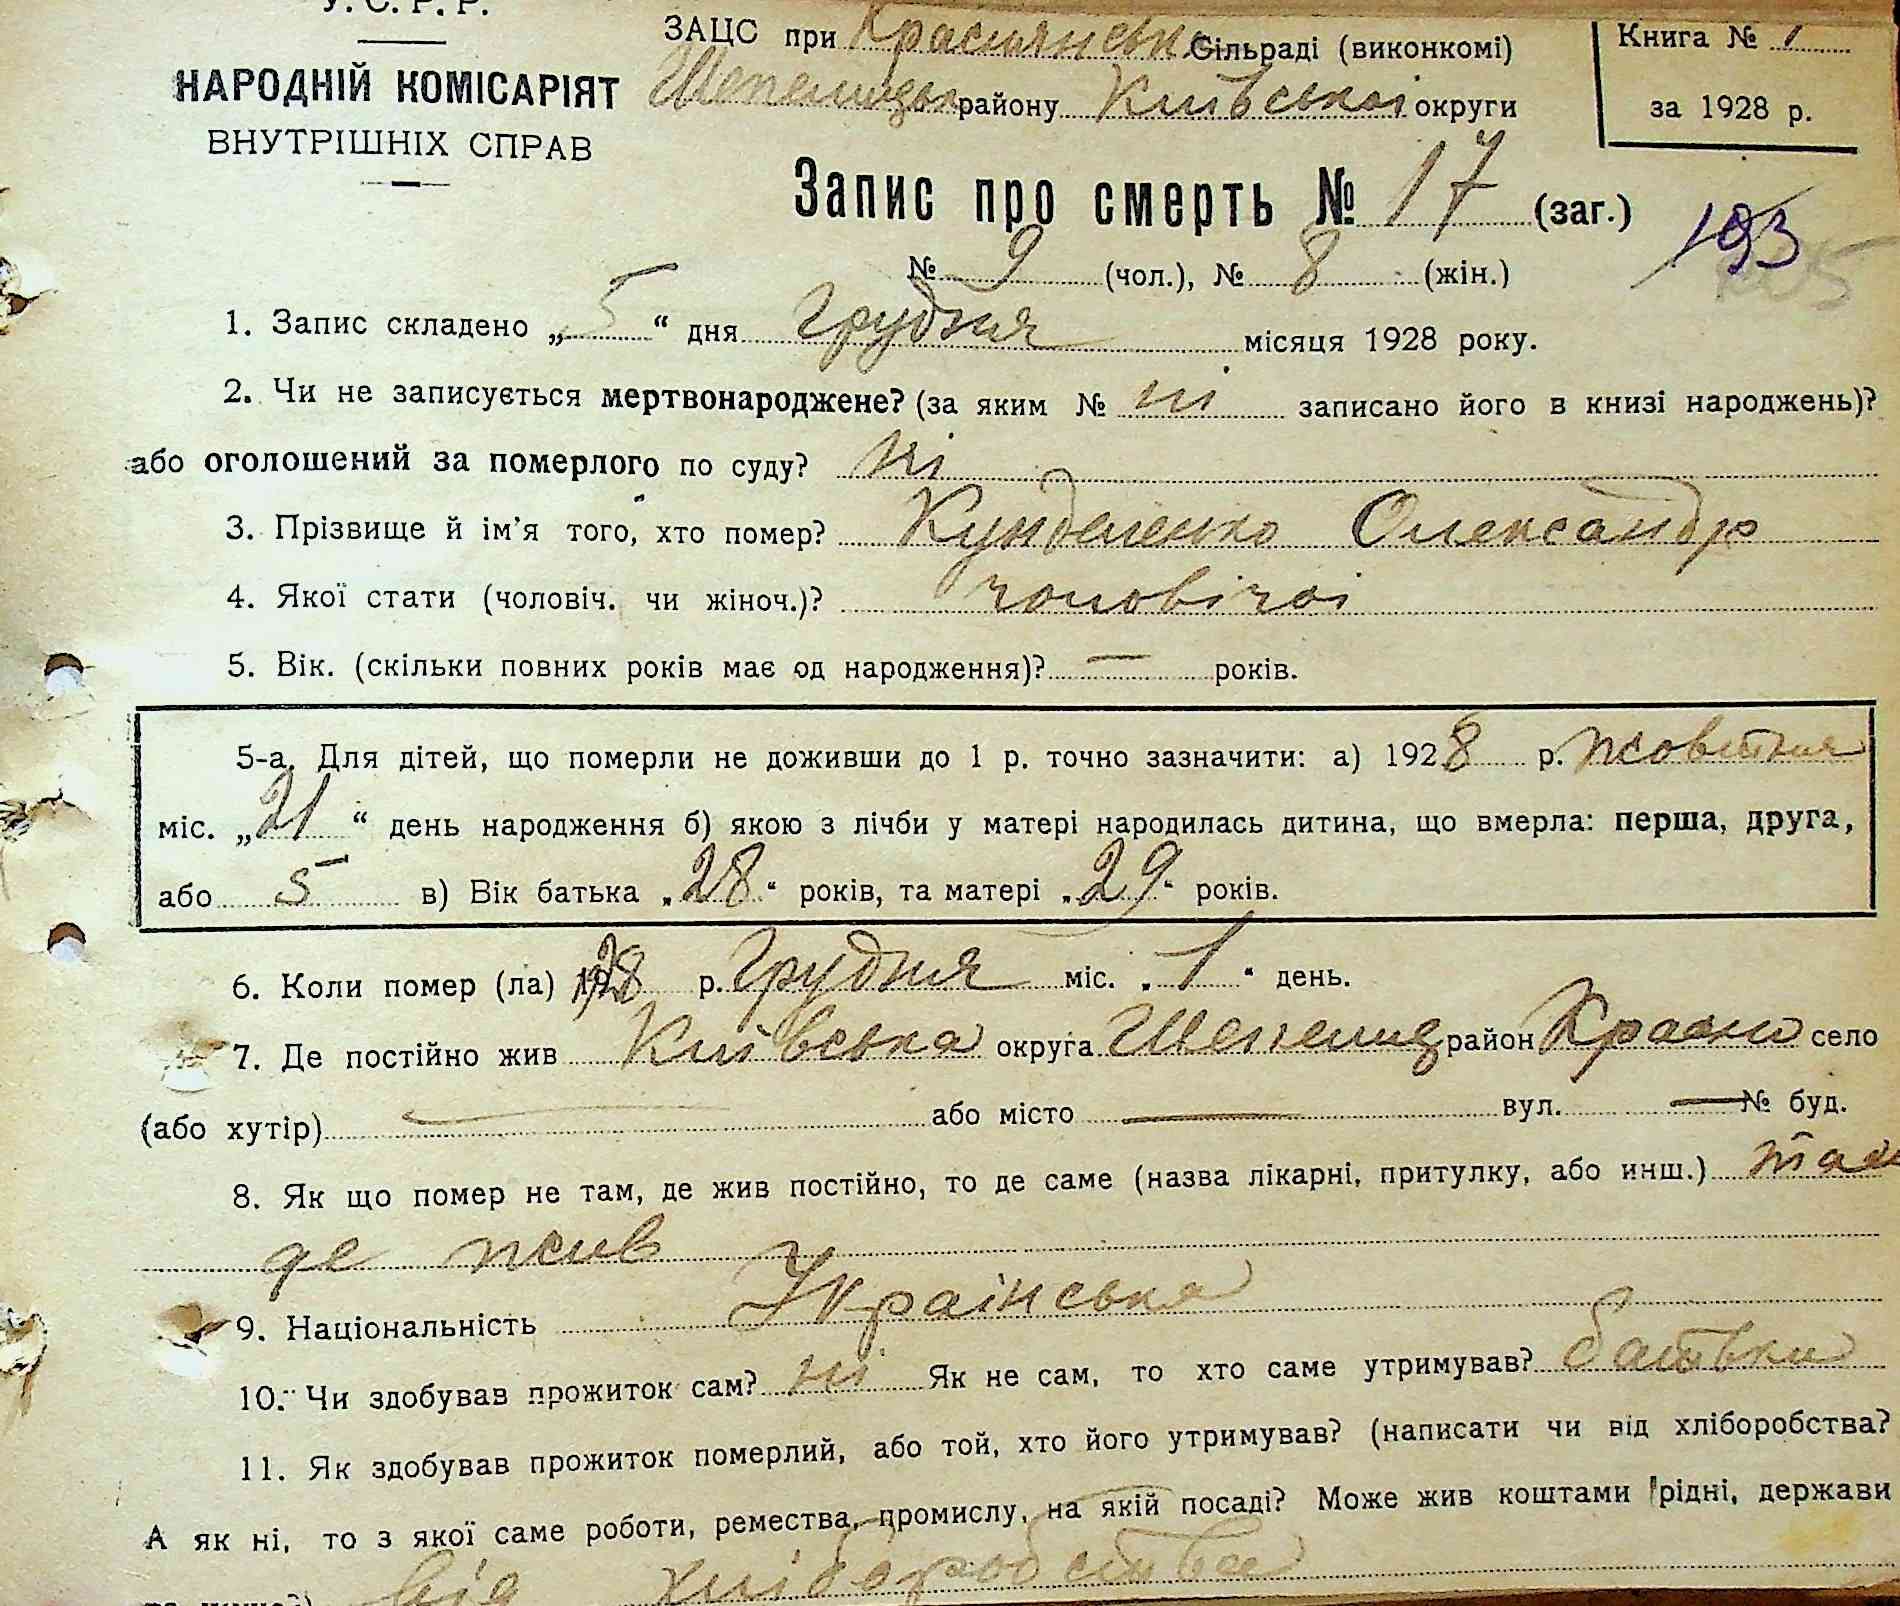 У. С. Р. Р.
НАРОДНІЙ КОМІСАРІЯТ
ВНУТРІШНІХ СПРАВ
ЗАЦС при Краснянськ Сільраді (виконкомі)
Шепелицьк району Київської округи
Книга № 1
за 1928 р.
Запис про смерть № 17 (заг.)
193
№ 9 (чол.), № 8 (жін.)
1. Запис складено „5“ дня Грудня місяця 1928 року.
2. Чи не записується мертвонароджене? (за яким № ні записано його в книзі народжень)?
або оголошений за померлого по суду? ні
3. Прізвище й ім’я того, хто помер? Кунделенко Олександр
4. Якої стати (чоловіч. чи жіноч.)? чоловічої
5. Вік. (скільки повних років має од народження)? — років.
5-а. Для дітей, що померли не доживши до 1 р. точно зазначити: а) 1928 р. жовтня
міс. „21“ день народження б) якою з лічби у матері народилась дитина, що вмерла: перша, друга,
або 5 в) Вік батька „28“ років, та матері „29“ років.
6. Коли помер (ла) 1928 р. Грудня міс. „1“ день.
7. Де постійно жив Київська округа Шепелиц район Красно село
(або хутір) — або місто — вул. — № буд.
8. Як що помер не там, де жив постійно, то де саме (назва лікарні, притулку, або инш.) там
де жив
9. Національність Українська
10. Чи здобував прожиток сам? ні Як не сам, то хто саме утримував? батьки
11. Як здобував прожиток померлий, або той, хто його утримував? (написати чи від хліборобства?
А як ні, то з якої саме роботи, ремества, промислу, на якій посаді? Може жив коштами рідні, держави
від хліборобства